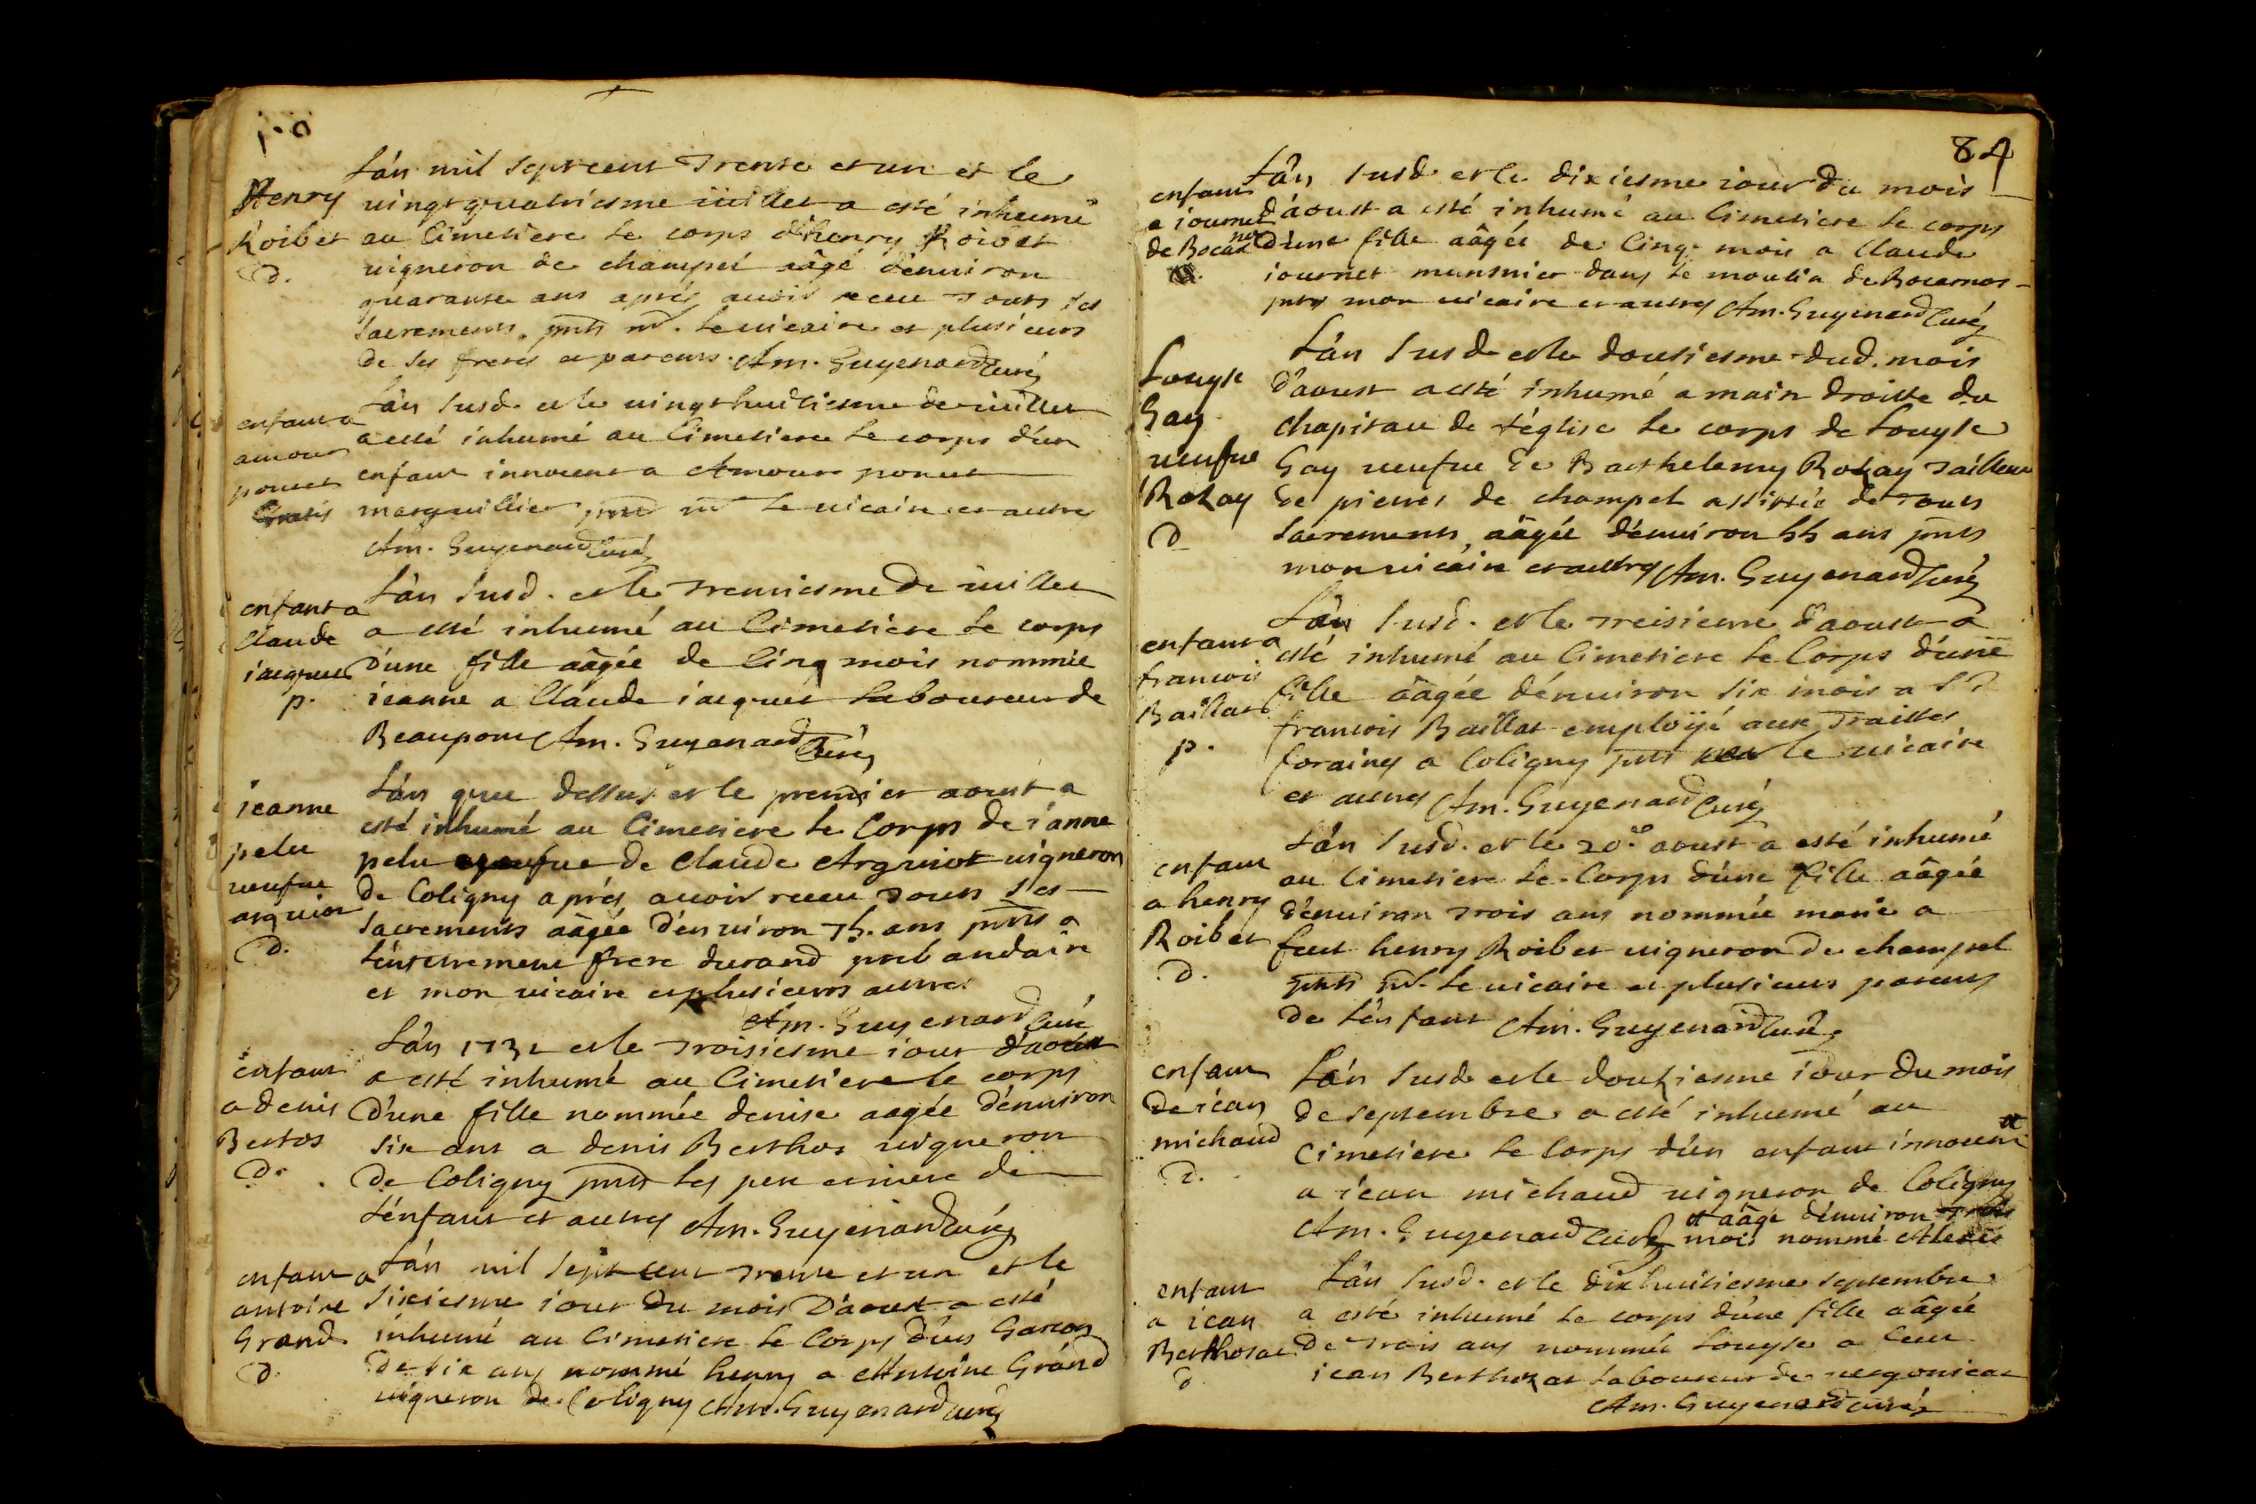 Henry
Roibet
D.
L'an mil sept cent trente et un et le
vingt quatriesme iuillet a esté inhumé
au Cimetiere le corps d'henry Roibet
vigneron de champel aâgé d'enuiron
quarante ans aprés auoir receu touts ses
sacrements. pnts mr. le vicaire et plusieurs
de ses freres et parents. Am. Guyenard Curé
enfant a
amour
ponret
Gratis
L'an susd. et le vingt huitiesme de iuillet
a esté inhumé au Cimetiere le corps d'un
enfant innocent a Amour ponret
marguillier pnts mr le vicaire et autre
Am. Guyenard Curé
enfant a
Claude
iacques
p.
L'an susd. et le trentiesme de iuillet
a esté inhumé au Cimetiere le corps
d'une fille aâgée de Cinq mois nommée
ieanne a Claude iacques laboureur de
Beaupont Am. Guyenard Curé
ieanne
pelu
veufue
arguiot
D.
L'an que dessus et le premier aoust a
esté inhumé au Cimetiere le Corps de iánne
pelu veufue de Claude Arguiot vigneron
de Coligny aprés auoir receu touts ses
sacrements aâgée d'enuiron 75. ans pnts a
l'enterrement frere durand prebandaire
et mon vicaire et plusieurs autres
Am. Guyenard Curé
enfant
a denis
Bertos
D.
L'an 1731 et le troisiesme iour d'aoust
a esté inhumé au Cimetiere le corps
d'une fille nommée denise aagée d'enuiron
six ans a denis Berthos vigneron
de Coligny pnts les pere et mere de
l'enfant et autres Am. Guyenard Curé
enfant a
antoine
Grand
D.
L'an mil sept cent trente et un et le
sixiesme iour du mois D'aoust a esté
inhumé au Cimetiere le Corps d'un Garcon
de six ans nommé henry a Antoine Gránd
vigneron de Coligny Am. Guyenard curé
84
enfant
a iournet
de Bocarnos
L'an susd. et le dixiesme iour du mois
d'aoust a esté inhumé au Cimetiere le corps
d'une fille aâgée de Cinq mois a Claude
iournet munsnier dans le moulin de Bocarnos
pnts mon vicaire et autres Am. Guyenard Curé
Louyse
Gay
veufue
Rozay
D
L'an susd. et le dousiesme dud. mois
d'aoust a esté inhumé a main droitte du
chapitau de l'église le corps de Louyse
Gay veufue de Barthelemy Rozay tailleur
de pierres de champel assistée de touts
sacrements, aâgée d'enuiron 55 ans pnts
mon vicaire et autres Am. Guyenard Curé
enfant a
francois
Baillat
p.
L'an susd. et le treisieme d'aoust a
esté inhumé au Cimetiere le Corps d'une
fille aâgée d'enuiron six mois a Sr
francois Baillat employé aux traittes
foraines a Coligny pnts le vicaire
et autres Am. Guyenard Curé
enfant
a henry
Roibet
D.
L'an susd. et le 20e. aoust a esté inhumé
au Cimetiere le Corps d'une fille aâgée
d'enuiron trois ans nommée marie a
feut henry Roibet vigneron de champel
pnts mr. le vicaire et plusieurs parens
de l'enfant Am. Guyenard Curé
enfant
de iean
michaud
D.
L'an susd. et le douziesme iour du mois
de septembre a esté inhumé au
Cimetiere le Corps d'un enfant innocent
a iean michaud vigneron de Coligny
et aâgé d'enuiron trois
Am. Guyenard Curé mois nommé Alexis
enfant
a iean
Berthozat
D
L'an susd. et le dixhuitiesme septembre
a esté inhumé le corps d'une fille aâgée
de trois ans nommée Louyse a feut
iean Berthozat laboureur de vergonicat
Am. Guyenard curé